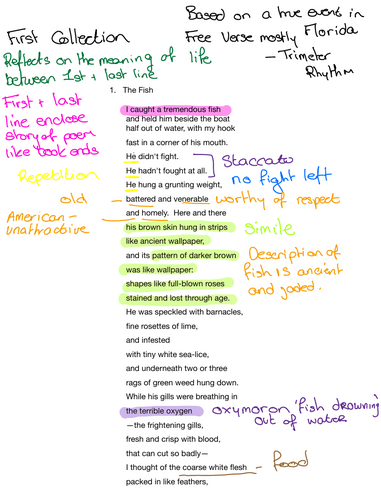 Based on a true event in
Florida
First Collection
Free Verse mostly
- Trimeter
Rhythm
Reflects on the meaning of life
between 1st + last line
1. The Fish
First + last
line enclose
story of poem
like book ends
I caught a tremendous fish
and held him beside the boat
half out of water, with my hook
fast in a corner of his mouth.
He didn't fight.
He hadn't fought at all.
Staccato
Repetition
He hung a grunting weight,
no fight left
old -
battered and venerable
worthy of respect
American -
unattractive
and homely. Here and there
his brown skin hung in strips
Simile
like ancient wallpaper,
and its pattern of darker brown
was like wallpaper:
shapes like full-blown roses
stained and lost through age.
Description of
fish is ancient
and jaded.
He was speckled with barnacles,
fine rosettes of lime,
and infested
with tiny white sea-lice,
and underneath two or three
rags of green weed hung down.
While his gills were breathing in
the terrible oxygen
oxymoron 'fish drowning
out of water
—the frightening gills,
fresh and crisp with blood,
that can cut so badly—
I thought of the coarse white flesh
- food
packed in like feathers,